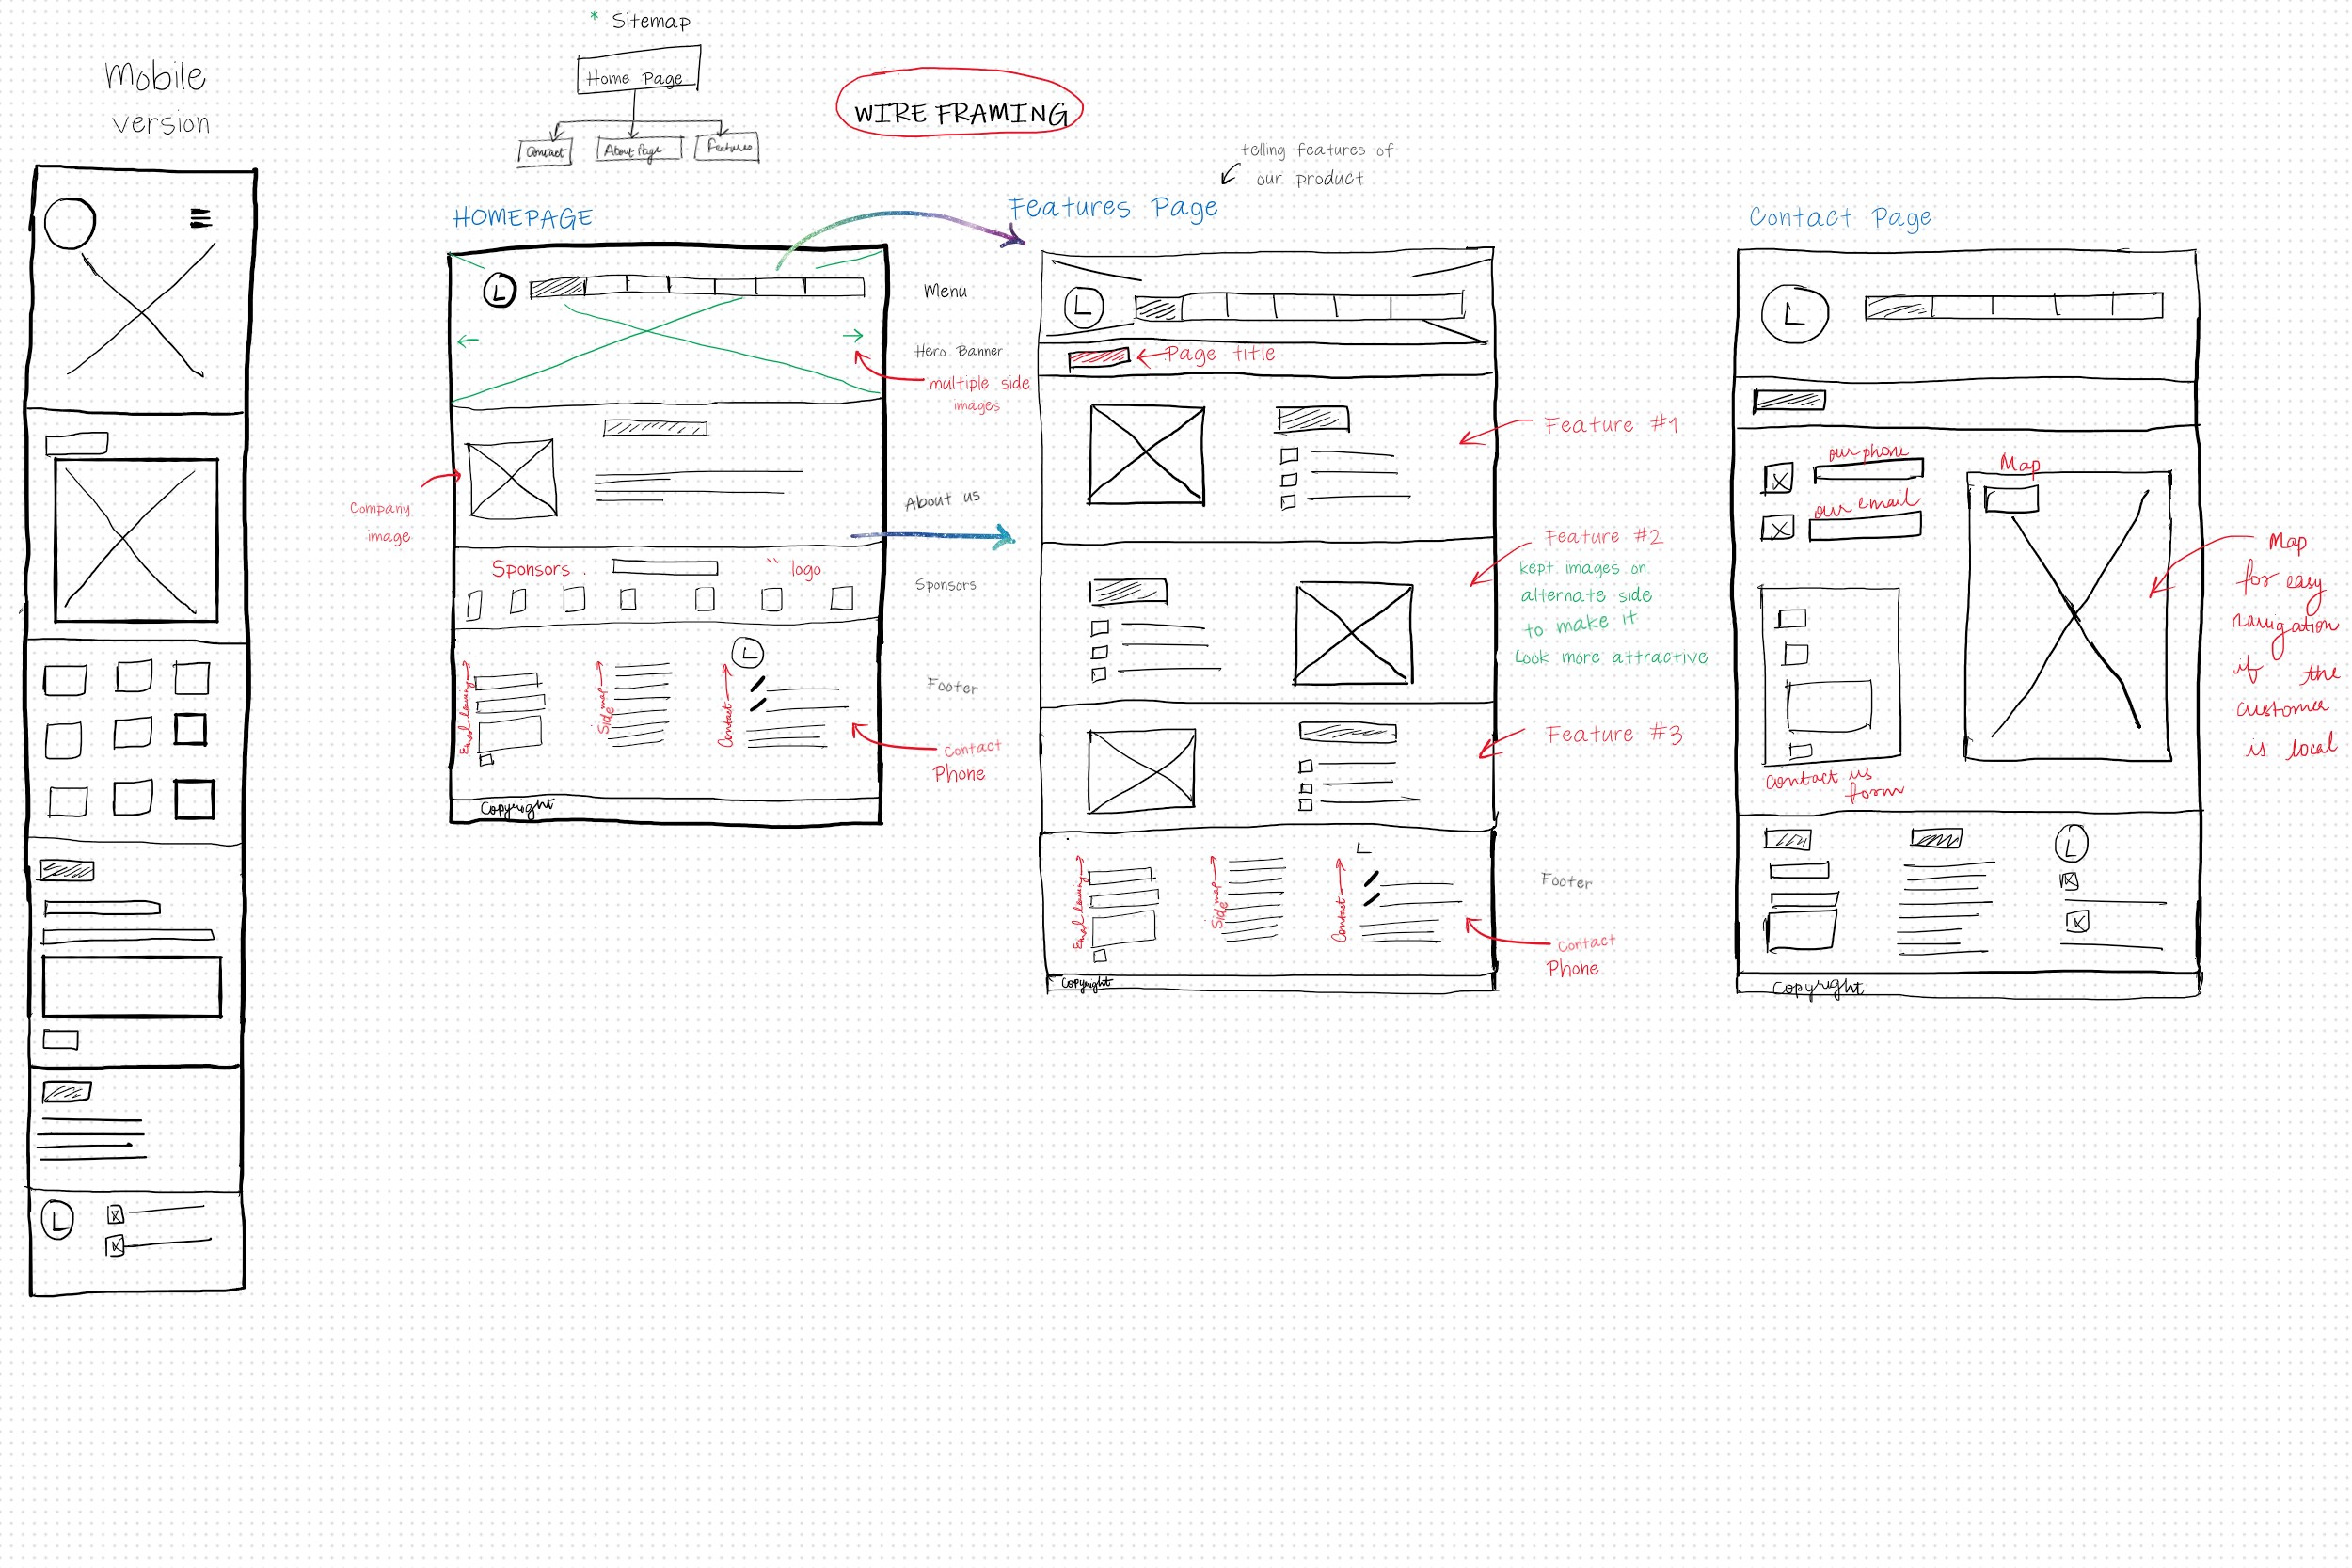 * Sitemap
Home Page
Contact
About Page
Features
Mobile
version
WIRE FRAMING
telling features of
our product
HOMEPAGE
L
Menu
Hero Banner
multiple side
images
Company
image
About us
Sponsors .
`` logo
Sponsors
L
Email leaving
Side map
Contact
Footer
Contact
Phone
Copyright
Features Page
L
Page title
Feature #1
Feature #2
kept images on
alternate side
to make it
Look more attractive
Feature #3
L
Email leaving
Side map
Contact
Footer
Contact
Phone
Copyright
Contact Page
L
our phone
our email
Map
Map
for easy
navigation
if the
customer
is local
Contact us
form
L
Copyright
L